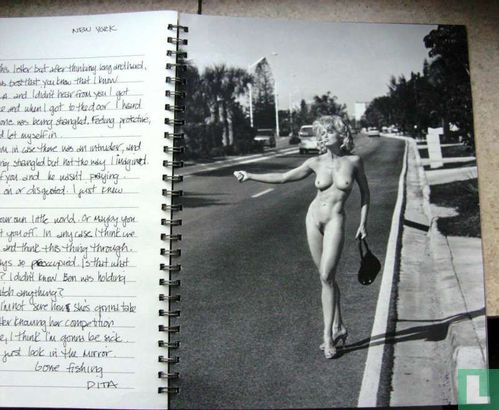 NEW YORK
his letter but after thinking long and hard,
best that you know that I know
and I didn't hear from you I got
and when I got to the door I heard
one was being strangled. Feeling protective,
let myself in
in case there was an intruder, and
strangled but not the way I imagined
you and he wasn't praying
on or disgusted. I just knew
our own little world. Or maybe you
t you off. In any case I think we
and think this thing through.
so preoccupied. Is that what
? I didn't know Ben was holding
anything?
I'm not sure how she's gonna take
her knowing her competition
I think I'm gonna be sick.
just look in the mirror.
Gone fishing
DITA
L